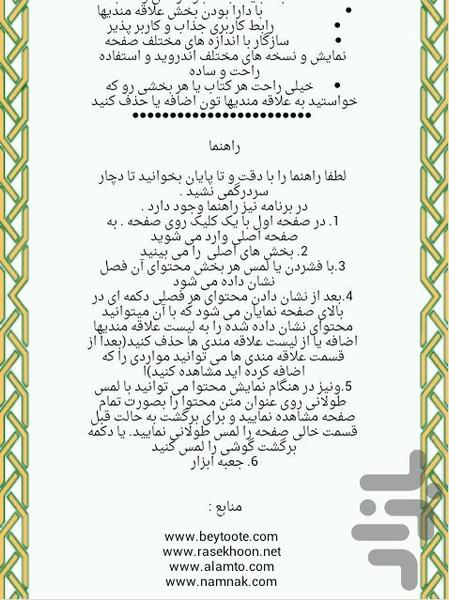 با دارا بودن بخش علاقه مندیها
رابط کاربری جذاب و کاربر پذیر
سازگار با اندازه های مختلف صفحه
نمایش و نسخه های مختلف اندروید و استفاده
راحت و ساده
خیلی راحت هر کتاب یا هر بخشی رو که
خواستید به علاقه مندیها تون اضافه یا حذف کنید
●●●●●●●●●●●●●●●●●●●●●●●●
راهنما
لطفا راهنما را با دقت و تا پایان بخوانید تا دچار
سردرگمی نشید .
در برنامه نیز راهنما وجود دارد .
1. در صفحه اول با یک کلیک روی صفحه . به
صفحه اصلی وارد می شوید
2. بخش های اصلی را می بینید
3.با فشردن یا لمس هر بخش محتوای آن فصل
نشان داده می شود
4.بعد از نشان دادن محتوای هر فصلی دکمه ای در
بالای صفحه نمایان می شود که با آن میتوانید
محتوای نشان داده شده را به لیست علاقه مندیها
اضافه یا از لیست علاقه مندی ها حذف کنید(بعدا از
قسمت علاقه مندی ها می توانید مواردی را که
اضافه کرده اید مشاهده کنید)ا
5.ونیز در هنگام نمایش محتوا می توانید با لمس
طولانی روی عنوان متن محتوا را بصورت تمام
صفحه مشاهده نمایید و برای برگشت به حالت قبل
قسمت خالی صفحه را لمس طولانی نمایید. یا دکمه
برگشت گوشی را لمس کنید
6. جعبه ابزار
منابع :
www.beytoote.com
www.rasekhoon.net
www.alamto.com
www.namnak.com
بازار